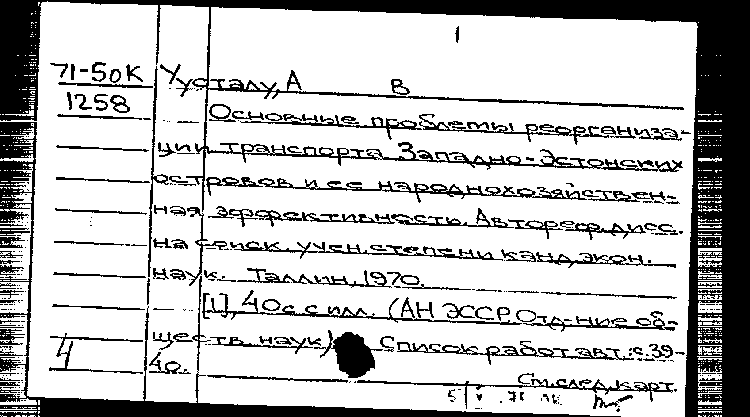 1
71-50К Уусталу, А В
1258 Основные проблемы реорганиза-
ции транспорта Западно-Эстонских
островов и ее народнохозяйствен-
ная эффективность. Автореф. дисс.
на соиск. учен. степени канд. экон.
наук. Таллин, 1970.
[1], 40с. с илл. (АН ЭССР. Отд-ние об-
ществ. наук) Список работ авт.: с. 39-
4 40.
См. след. карт.